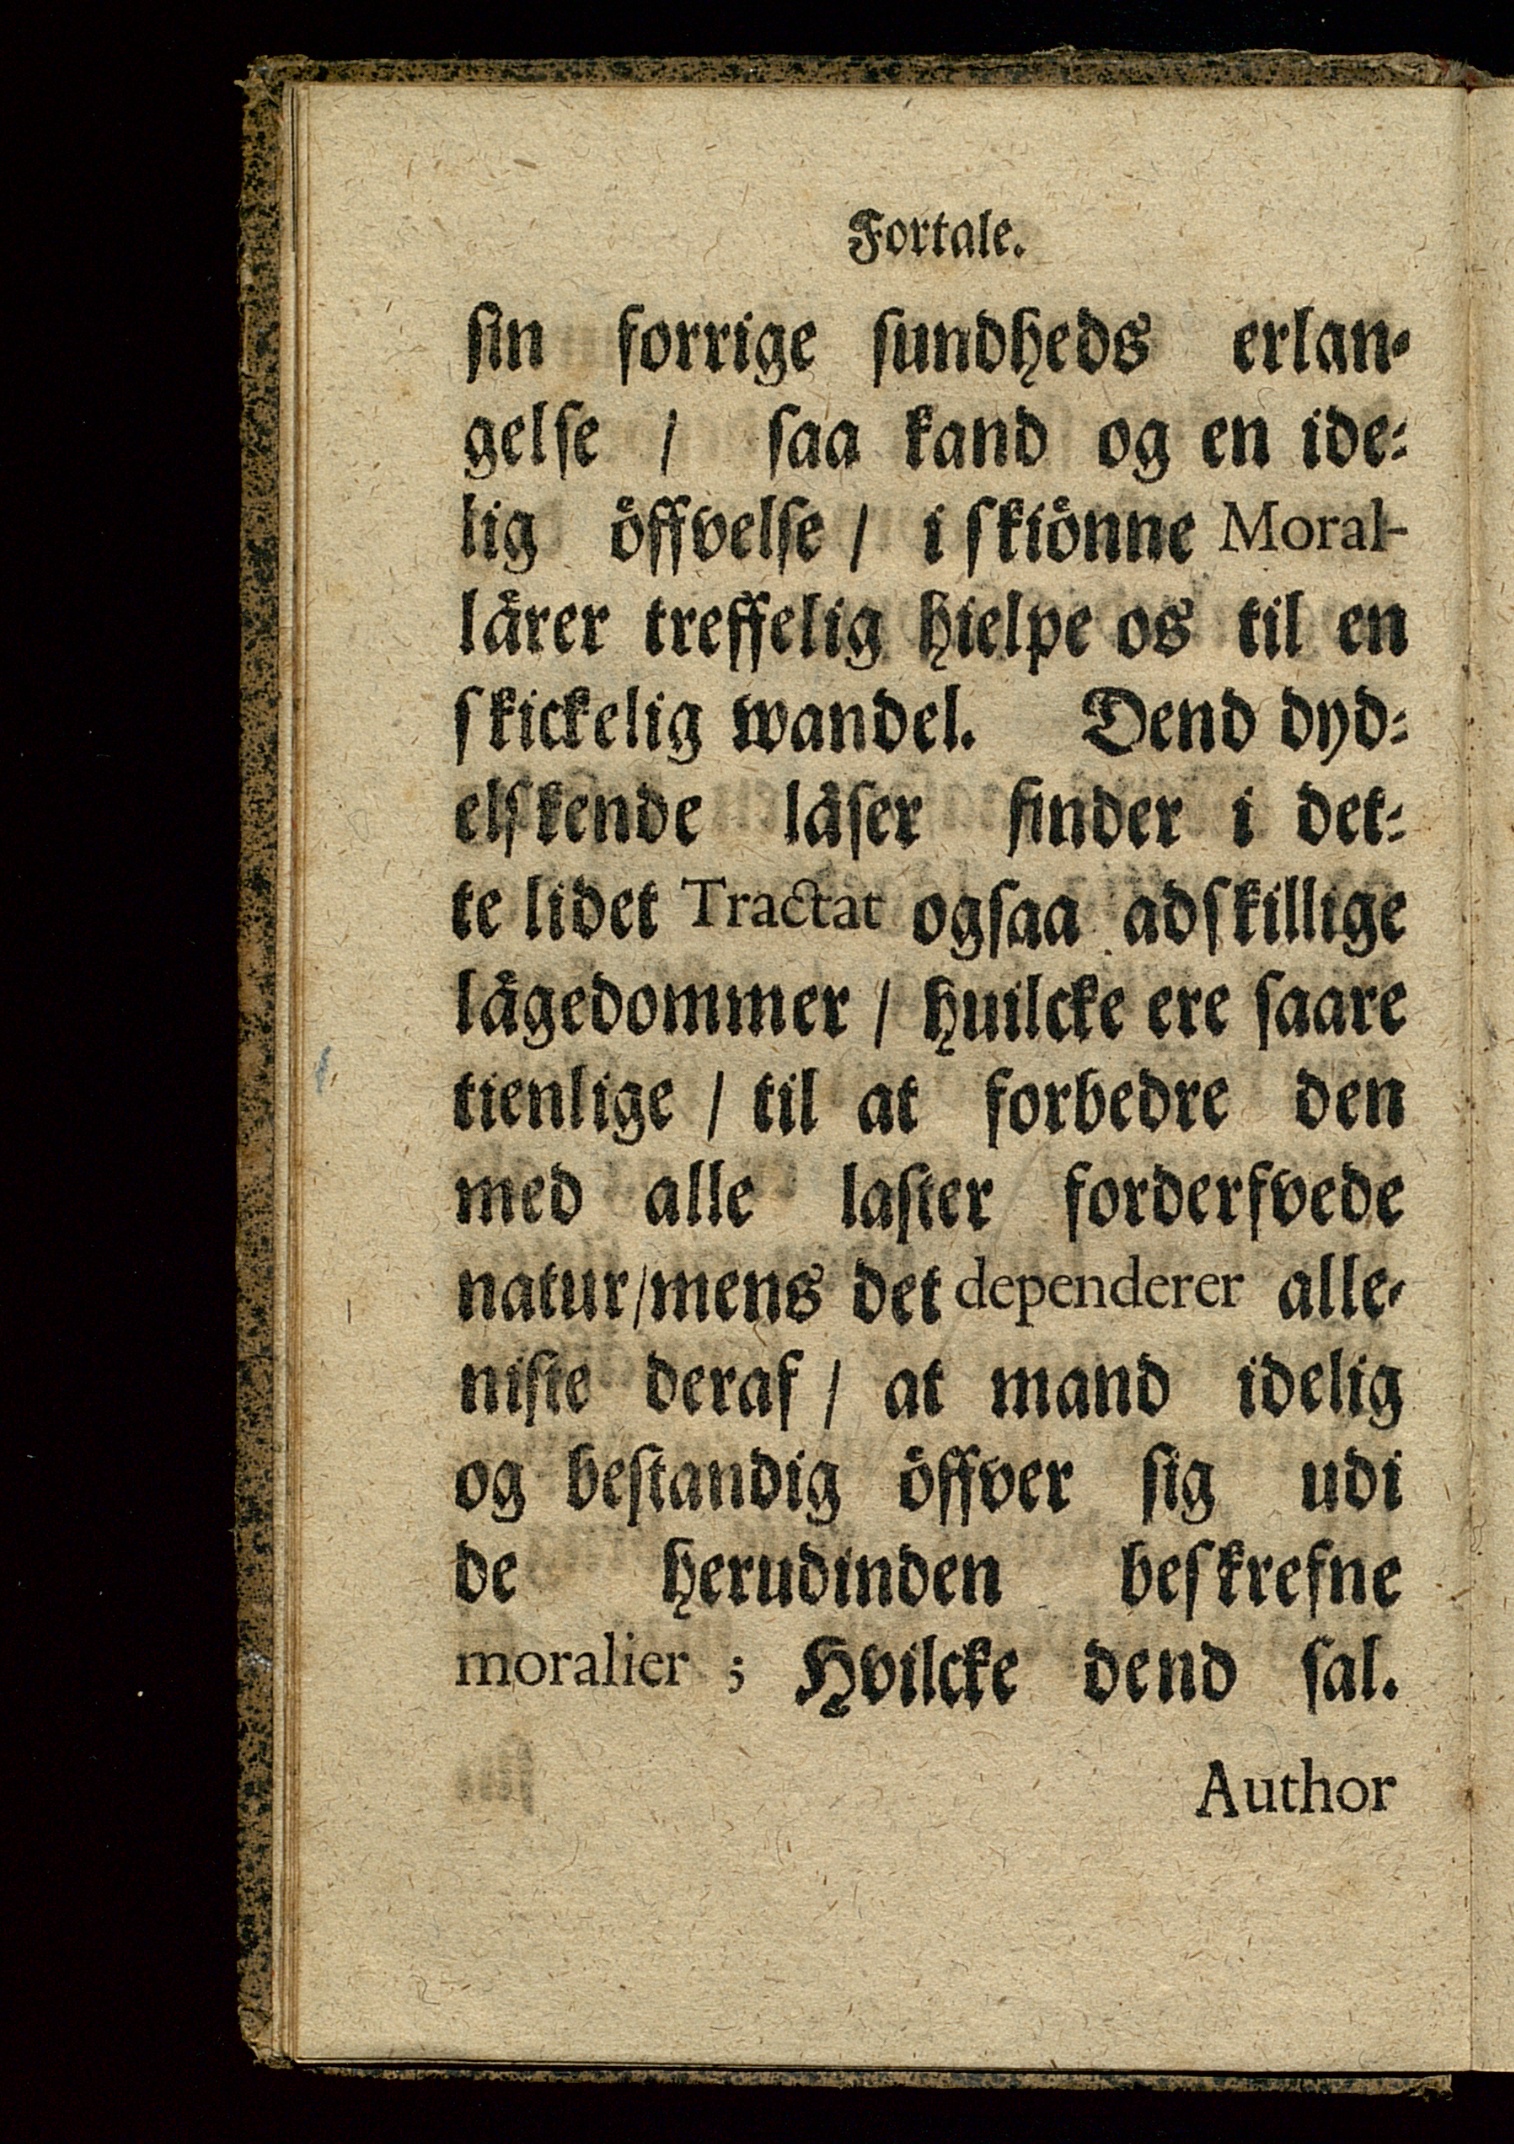 Fortale.
ſin forrige ſundheds erlan⸗
gelſe / ſaa kand og en ide⸗
lig öffvelſe / i ſkiönne Moral-
lärer treffelig hielpe os til en
ſkickelig wandel. Dend dyd⸗
elſkende läſer finder i det⸗
te lidet Tractat ogſaa adſkillige
lägedommer / huilcke ere ſaare
tienlige / til at forbedre den
med alle laſter forderfvede
natur/mens det dependerer alle⸗
niſte deraf / at mand idelig
og beſtandig öffver ſig udi
de herudinden beſkrefne
moralier ; Hvilcke dend ſal.
Author